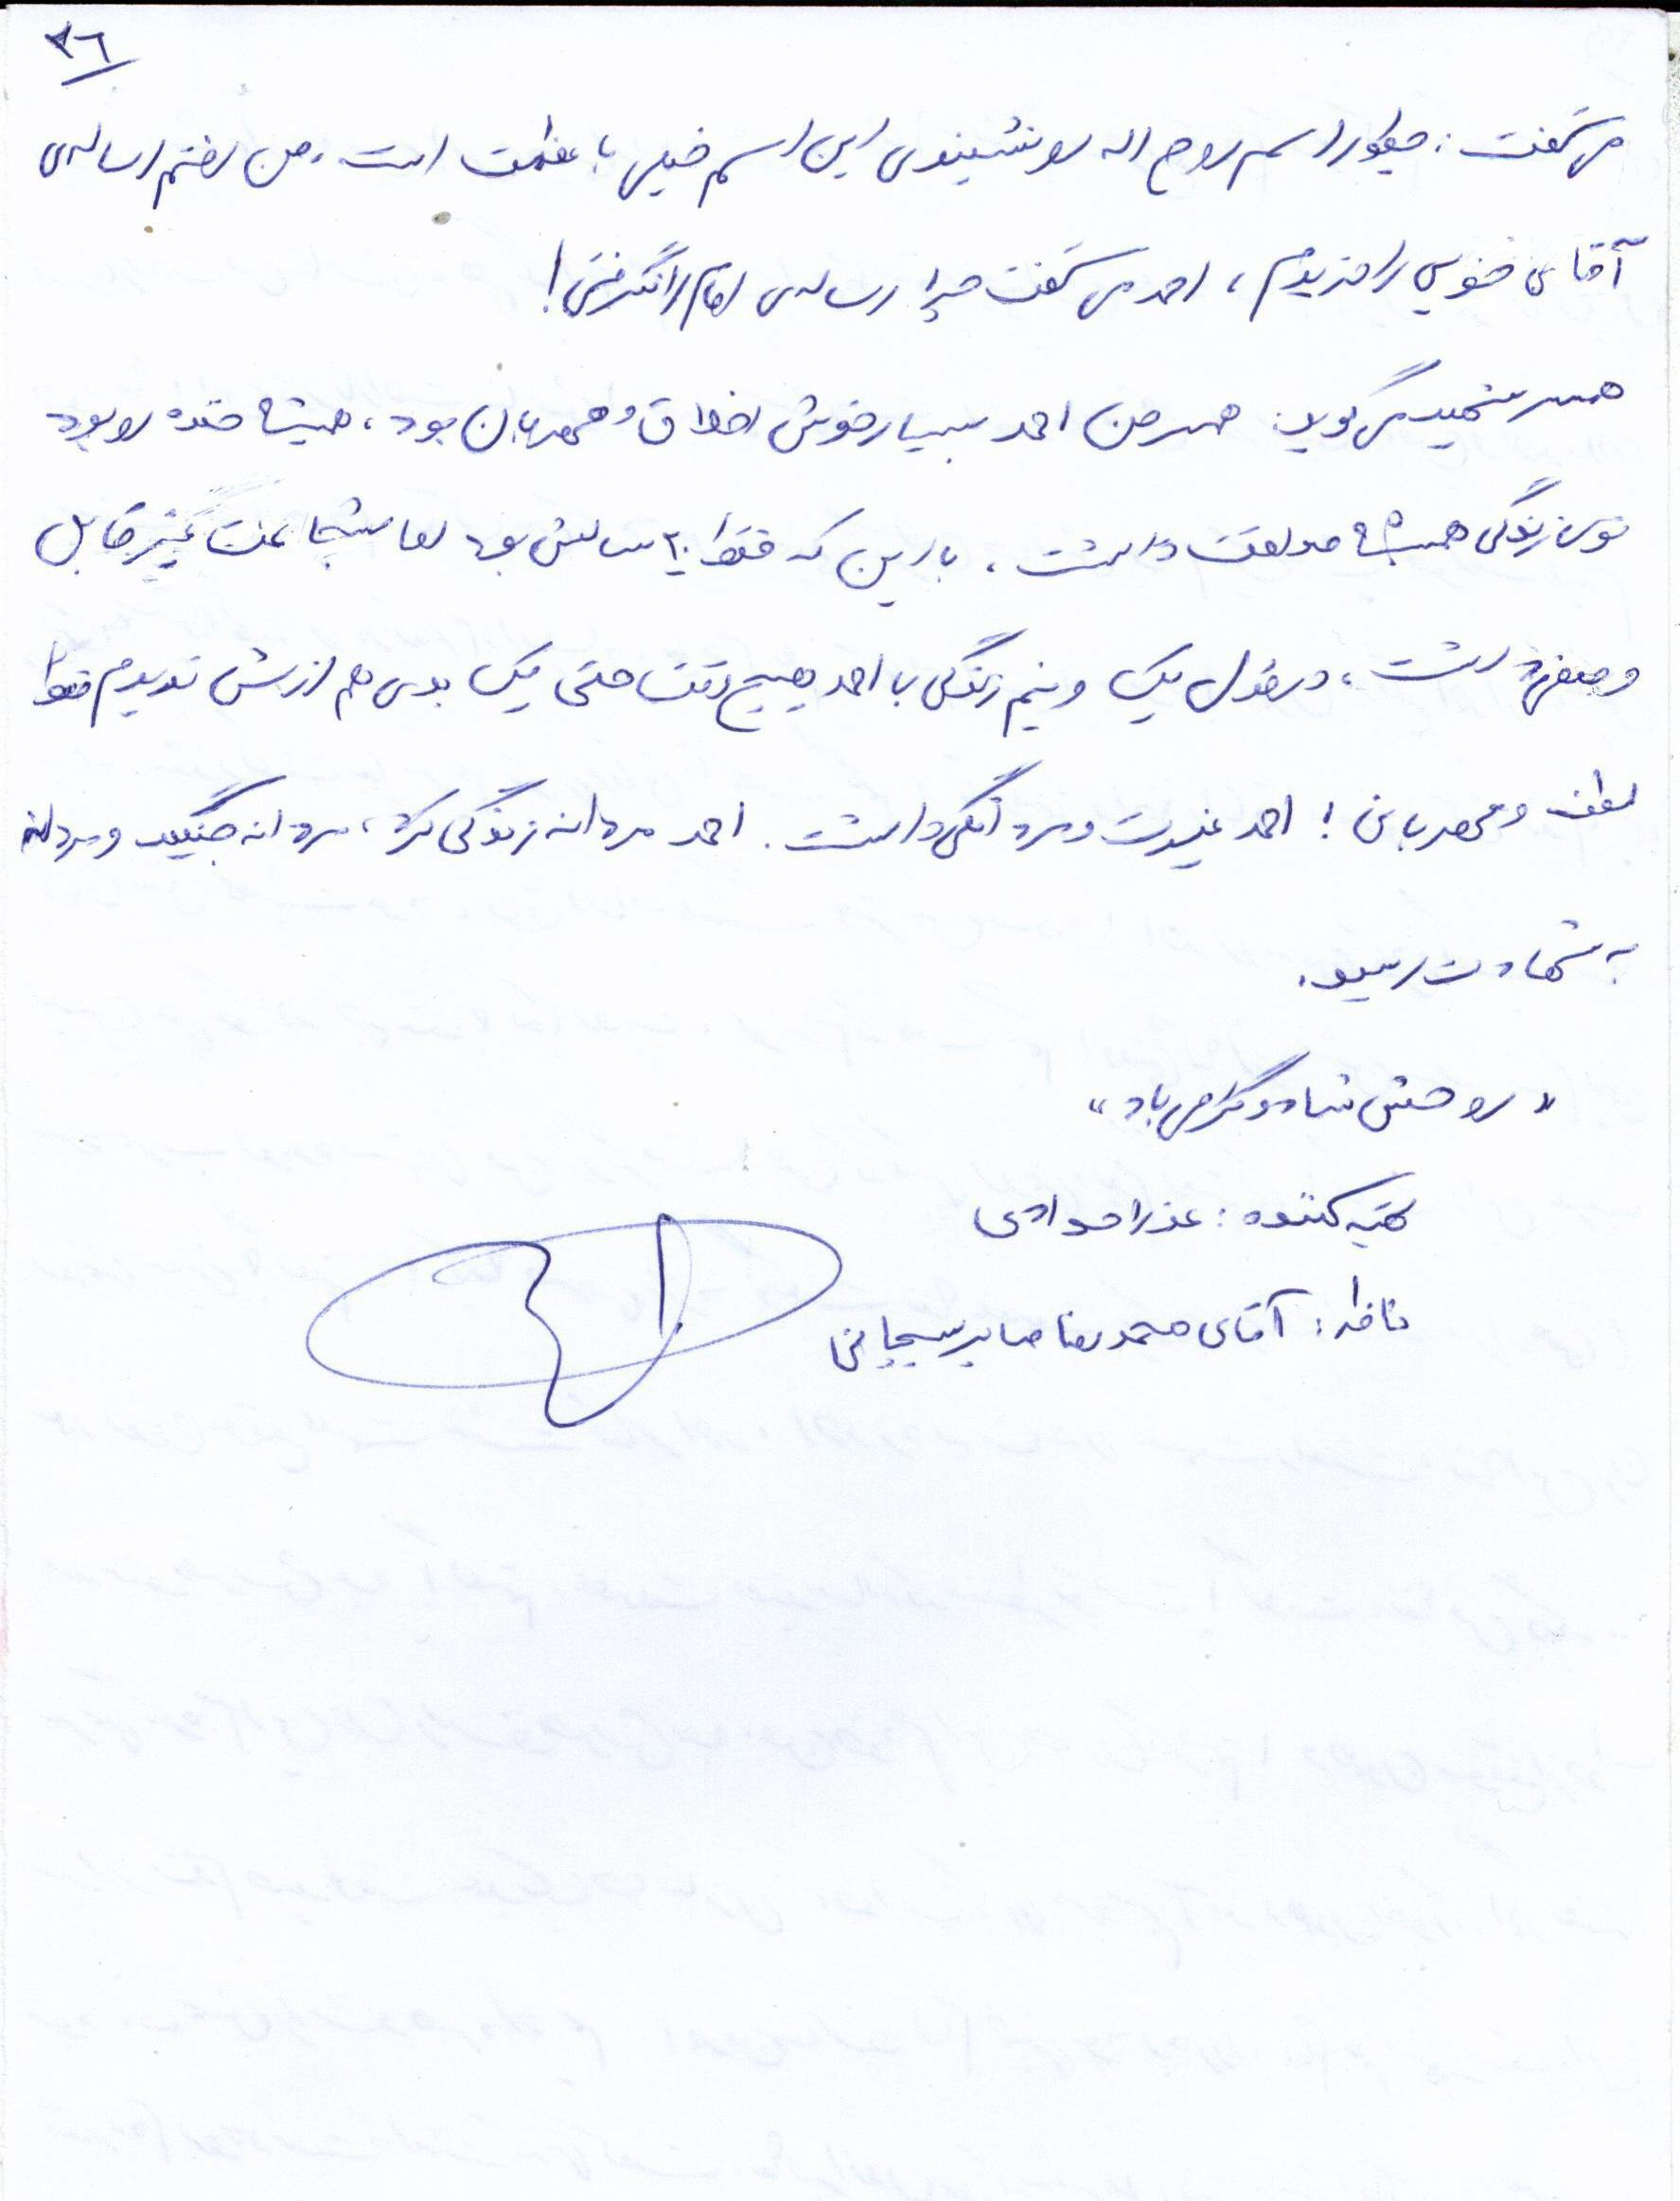 ۳۶
می گفت: چطور اسم روح اله رو نشینوی این اسم خیلی با عظمت است. من رفتم رساله ی
آقای خویی را خریدم، احمد می گفت چرا رساله ی امام را نگرفتی!
همسر شهید می گوید: همسر من احمد بسیار خوش اخلاق و مهربان بود، همیشه خنده رو بود
توی زندگی همیشه صداقت داشت. با این که فقط ۲۰ سالش بود اما شجاعت غیر قابل
وصفی داشت. در طول یک و نیم زندگی با احمد هیچ وقت حتی یک بدی هم ازش ندیدم فقط
لطف و مهربانی! احمد غیرت و مردانگی داشت. احمد مردانه زندگی کرد، مردانه جنگید و مردانه
به شهادت رسید.
«روحش شاد و گرامی باد»
تهیه کننده: عذرا مرادی
ناظر: آقای محمدرضا صابر سیجانی